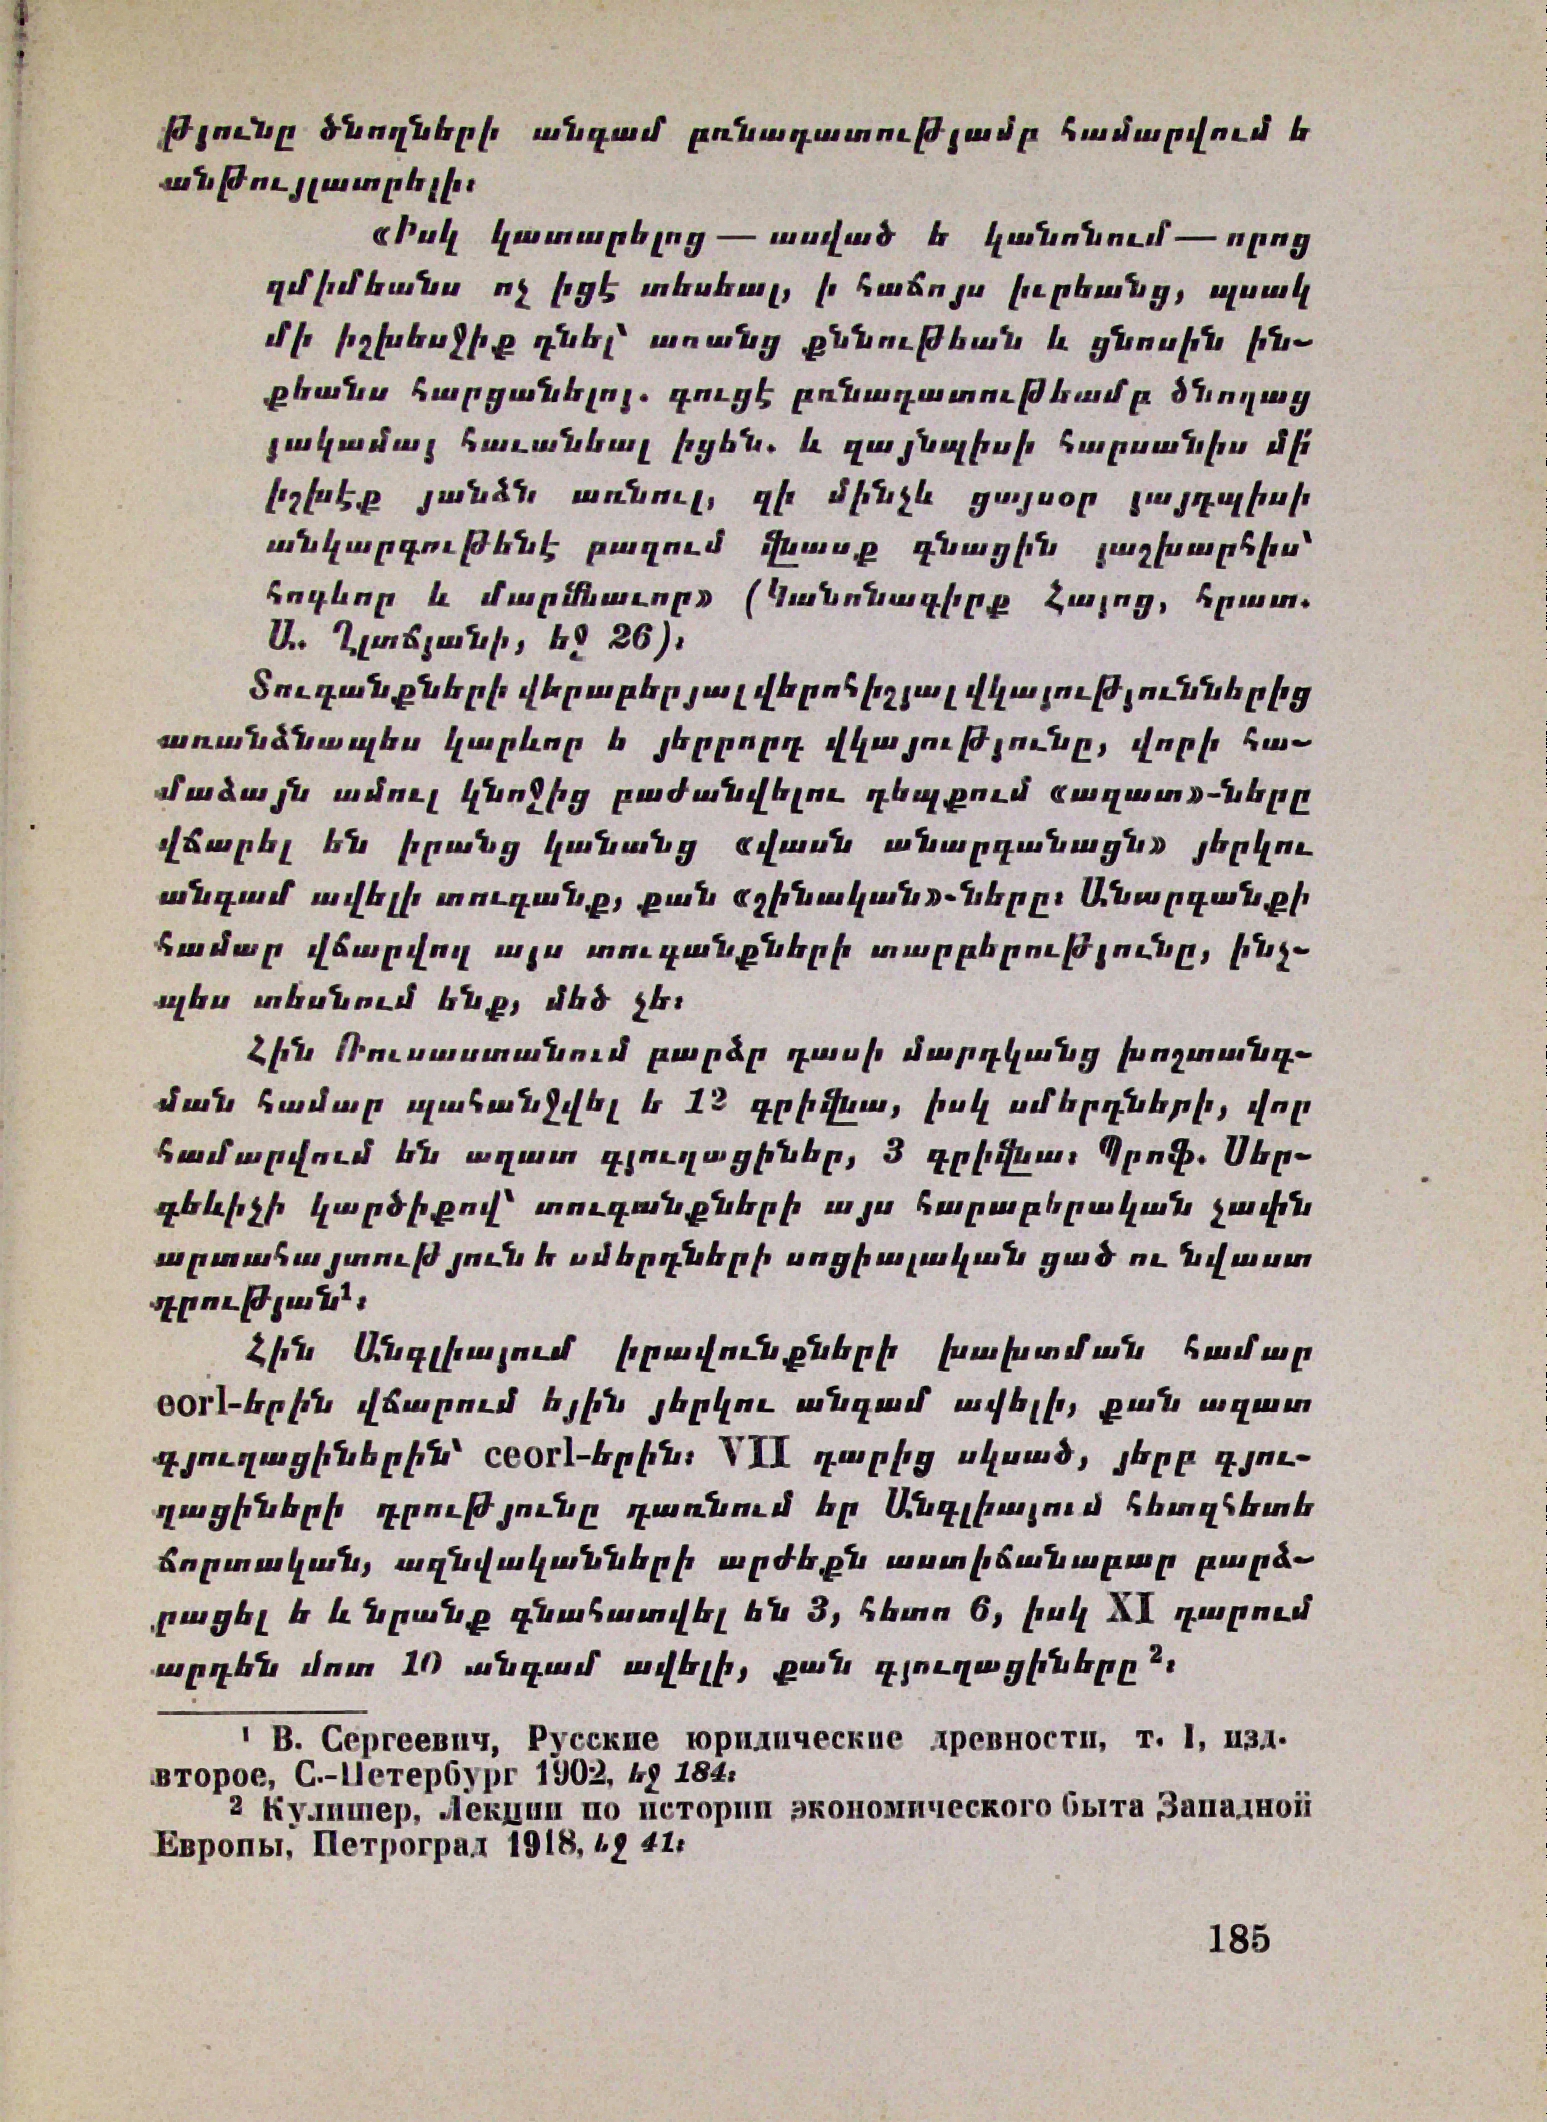 թյունը ծնողների անգամ բռնադատությամբ համարվում ե
անթույլատրելի։
«Իսկ կատարելոց — ասված ե կանոնում — որոց
զմիմեանս ոչ իցէ տեսեալ, ի հաճոյս իւրեանց, պսակ
մի իշխեսջիք դնել՝ առանց քննութեան և ցնոսին ին-
քեանս հարցանելոյ. գուցէ բռնադատութեամբ ծնողաց
յակամայ հաւանեալ իցեն. և զայնպիսի հարսանիս մի՛
իշխէք յանձն առնուլ, զի մինչև ցայսօր յայդպիսի
անկարգութենէ բազում վնասք գնացին յաշխարհիս՝
հոգևոր և մարմնաւոր» (Կանոնագիրք Հայոց, հրատ.
Ա. Ղլտճյանի, եջ 26)։
Տուգանքների վերաբերյալ վերոհիշյալ վկայություններից
առանձնապես կարևոր ե յերրորդ վկայությունը, վորի հա-
մաձայն ամուլ կնոջից բաժանվելու դեպքում «ազատ»-ները
վճարել են իրանց կանանց «վասն անարգանացն» յերկու
անգամ ավելի տուգանք, քան «շինական»-ները։ Անարգանքի
համար վճարվող այս տուգանքների տարբերությունը, ինչ-
պես տեսնում ենք, մեծ չե։
Հին Ռուսաստանում բարձր դասի մարդկանց խոշտանգ-
ման համար պահանջվել ե 12 գրիվնա, իսկ սմերդների, վոր
համարվում են ազատ գյուղացիներ, 3 գրիվնա։ Պրոֆ. Սեր-
գեևիչի կարծիքով՝ տուգանքների այս հարաբերական չափն
արտահայտություն ե սմերդների սոցիալական ցած ու նվաստ
դրության¹։
Հին Անգլիայում իրավունքների խախտման համար
eorl-երին վճարում եյին յերկու անգամ ավելի, քան ազատ
գյուղացիներին՝ ceorl-երին։ VII դարից սկսած, յերբ գյու-
ղացիների դրությունը դառնում եր Անգլիայում հետզհետե
ճորտական, ազնվականների արժեքն աստիճանաբար բարձ-
րացել ե և նրանք գնահատվել են 3, հետո 6, իսկ XI դարում
արդեն մոտ 10 անգամ ավելի, քան գյուղացիները²։
¹ В. Сергеевич, Русские юридические древности, т. I, изд.
второе, С.-Петербург 1902, եջ 184։
² Кулишер, Лекции по истории экономического быта Западной
Европы, Петроград 1918, եջ 41։
185